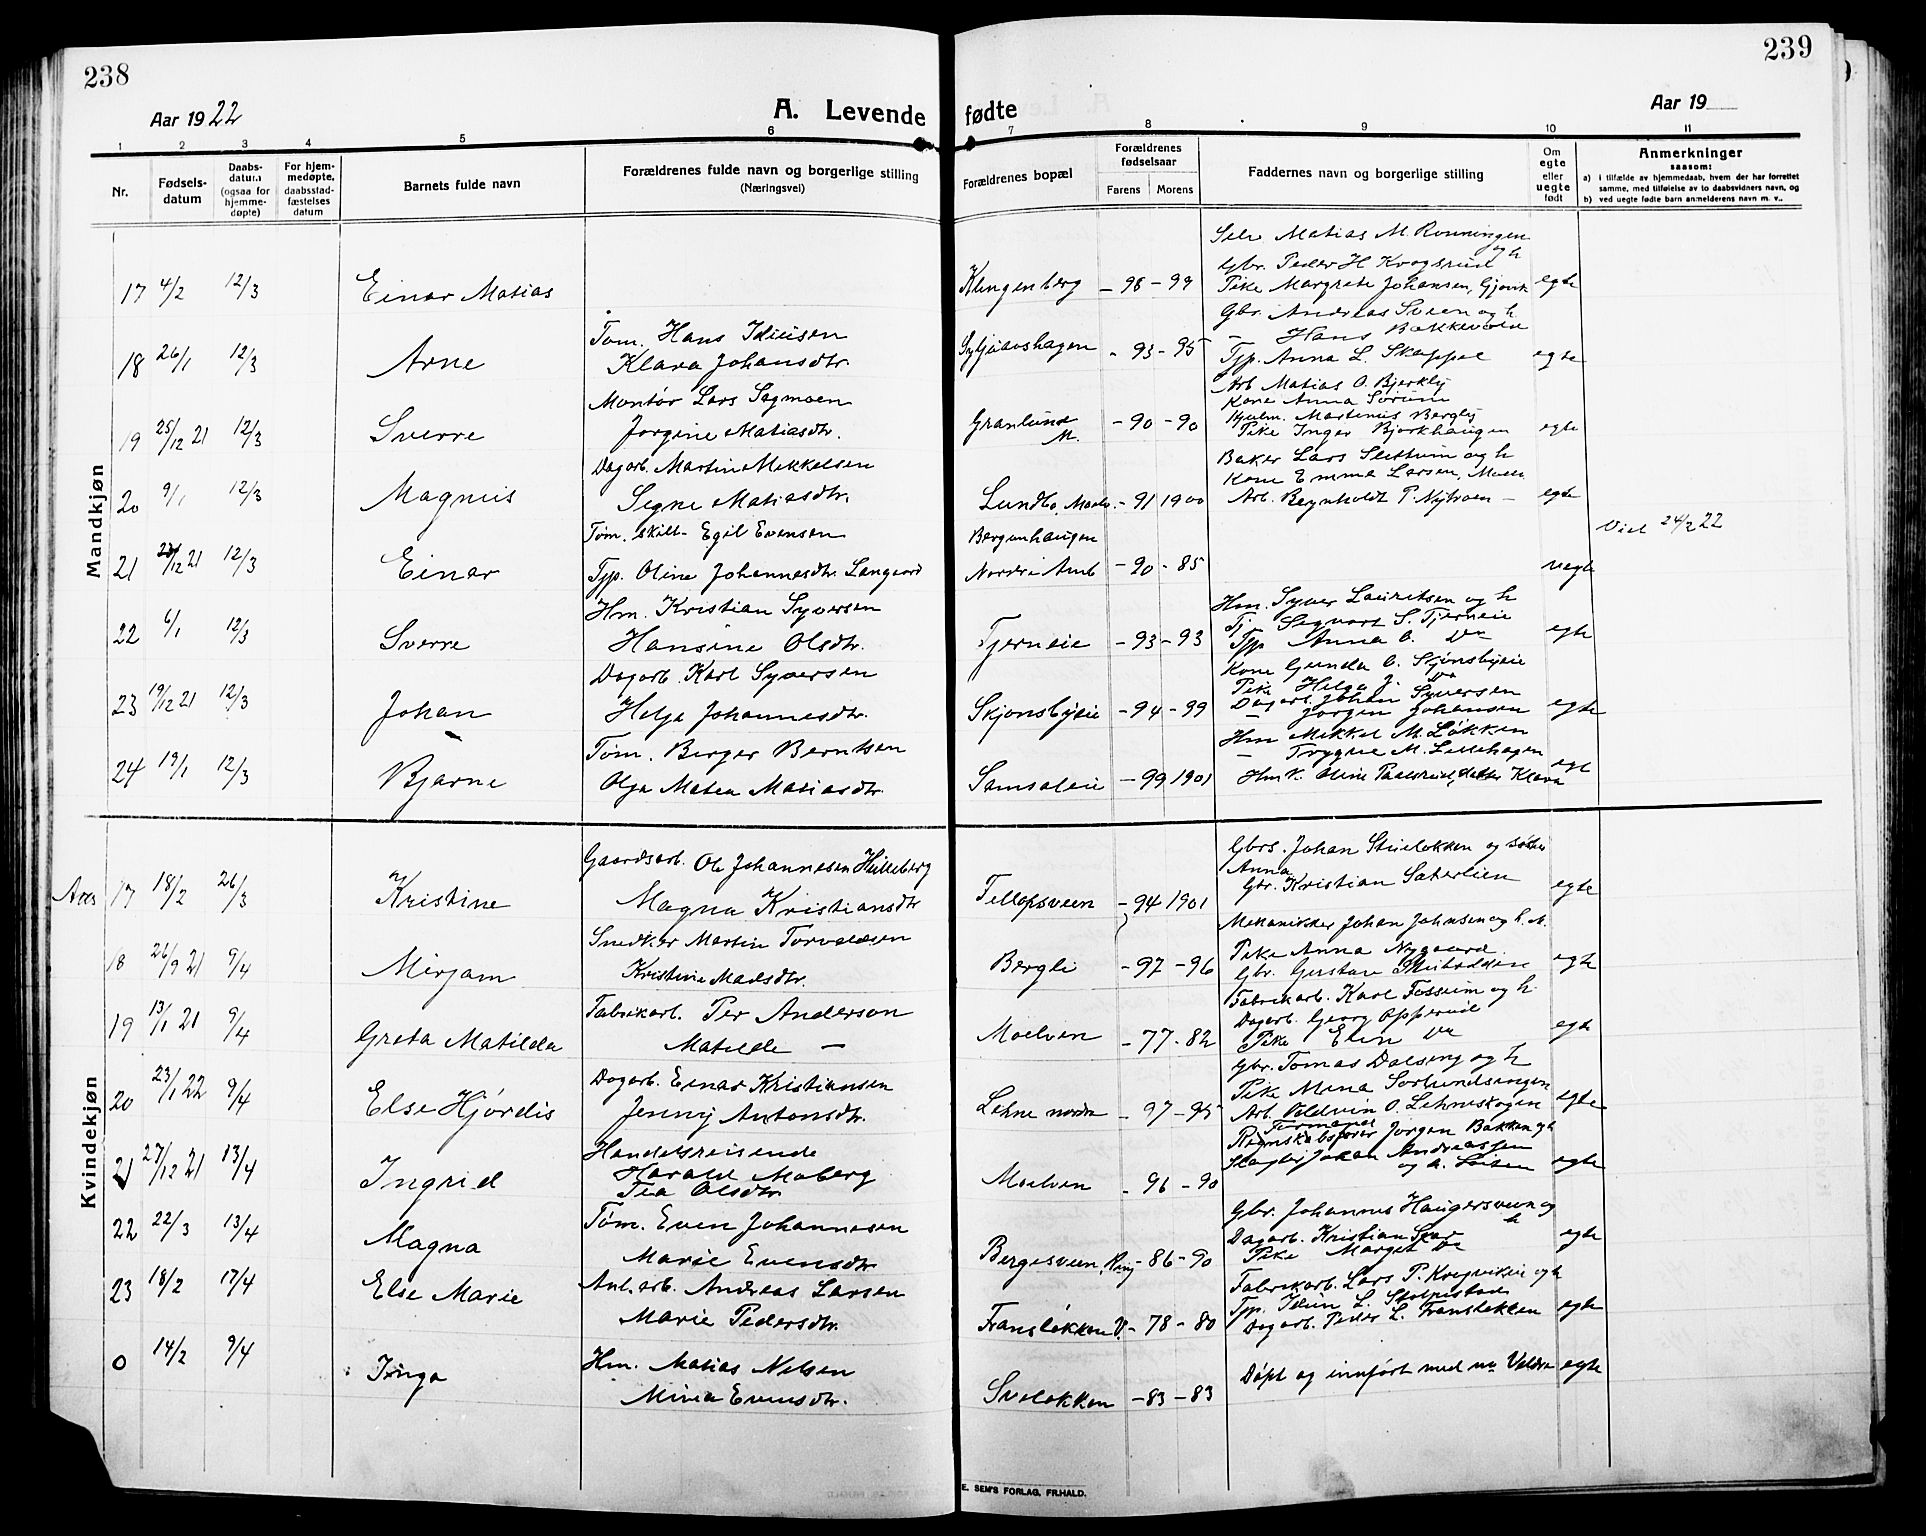 238
239
Aar 1922
A. Levende fødte
Aar 19
1 2 3 4 5 6 7 8 9 10 11
Nr.
Fødsels-
datum
Daabs-
datum
(ogsaa for
hjemme-
døpte)
For hjem-
medøpte,
daabsstad-
fæstelses
datum
Barnets fulde navn
Forældrenes fulde navn og borgerlige stilling
(Næringsvei)
Forældrenes bopæl
Forældrenes
fødselsaar
Farens Morens
Faddernes navn og borgerlige stilling
Om
egte
eller
uegte
født
Anmerkninger
saasom:
a) i tilfælde av hjemmedaab, hvem der har forrettet
samme, med tilføielse av to daabsvidners navn, og
b) ved uegte fødte barn anmelderens navn m. v..
Mandkjøn
Selv. Matias M. Ronningen
og h
Gbr. Peder H Krogsrud
17 4/2 12/3 Einar Matias Klingenberg - 98 - 99 Pike Margrete Johansen, Gjøvik egte
Gbr. Andreas Sveen og h.
Tøm. Hans Idiusen
- Hans Bakkevolen
18 26/1 12/3 Arne Klara Johansdtr. - 93 - 95 Tjp. Anna L. Skappel egte
Montør Lars Sagmoen
Arb Matias O. Bjerkly
Kone Anna Sørum
Martenius Bergly
19 25/12 21 12/3 Sverre Jorgine Matiasdtr. Granlund M. - 90 - 90 Pike Inger Bjørkhaugen egte
Dagarb. Martin Mikkelsen
Baker Lars Slettum og h
Kone Emma Larsen, Moelv
20 9/1 12/3 Magnus Signe Matiasdtr. Lundbo, Moelv. - 91 1900 Arb. Reynholdt P. Nyhroen - egte
Tøm. skilt- Egil Evensen Bergenhaugen
Viel 24/2 22
21 12 21 12/3 Einar Tjp. Oline Johannesdtr. Langaard Nordre Amb - 90 - 85 uegte
Hm. Kristian Syversen
Hm. Syver Lauritsen og h
Tj Sigvart S. Tjerneie
22 6/1 12/3 Sverre Hansine Olsdtr. Tjerneie - 93 - 93 Tjp Anna O. Do egte
Dagarb. Karl Syversen
Kone Gunda O. Skjønsbyeie
Pike Helga J. Do
Dagarb. Johan Syversen
23 19/12 21 12/3 Johan Helga Johannesdtr. Skjonsbyeie - 94 - 99 - Jørgen Johansen egte
Tøm. Berger Berntsen
Hm Mikkel M. Løkken
- Trygve M. Lillehagen
24 19/1 12/3 Bjarne Olga Matea Matiasdtr. Samsaleie - 99 1901 egte
Kvindekjøn
Gaardsarb. Ole Johannesen Helleberg
Gbrs. Johan Stueløkken og søster
Anna
17 18/2 26/3 Kristine Magna Kristiansdtr - 94 1901 Gbr. Kristian Saterlien egte
Snedker Martin Torvaldsen
Mekanikker Johan Johnsen og h. M.
Pike Anna Nygaard
18 26/9 21 9/4 Mirjam Kristine Madsdtr. Bergli - 97 - 96 Gbr. Gustav egte
Fabrikarb. Per Anderson
Fabrikarb. Karl Fossum og h.
Dagarb. Georg Opperud
19 13/1 21 9/4 Greta Matilda Matilde - Moelven - 77 - 82 Pike Elin Do egte
Dagarb. Einar Kristiansen
Gbr. Tomas Dalseng og h
Pike Mina Sorlundsengen
20 23/1 22 9/4 Else Hjørdis Jenny Antonsdtr. Lehne nordre - 97 - 95 Arb. Oldvin O. Lehneskogen egte
Handelsreisende
Regnskapsfører Jørgen Bakken og h
Harald Moberg
Johan Andreassen
21 27/12 21 13/4 Ingrid Tea Olsdtr Moelven - 96 - 90 egte
Tøm. Even Johannesen
Gbr. Johannes Haugersveen og
h
22 22/3 13/4 Magna Marie Evensdtr Bergesveen, Ring - 86 - 90 Dagarb. Kristian egte
Pike Margit Do
23 18/2 17/4 Else Marie Anl.arb. Andreas Larsen
Fabrikarb. Lars P. Kregvikeie og h
Tjp. Idun L. Stolpestad
Marie Pedersdtr. Fransløkken V. - 78 - 80 Dagarb. Peder L. Fransløkken egte
0 14/2 9/4 Inga Hm. Matias Nilsen Døpt og innført med no Veldre egte
Mina Evensdtr. Sveløkken - 83 - 83
E. SEM'S FORLAG, FR.HALD.